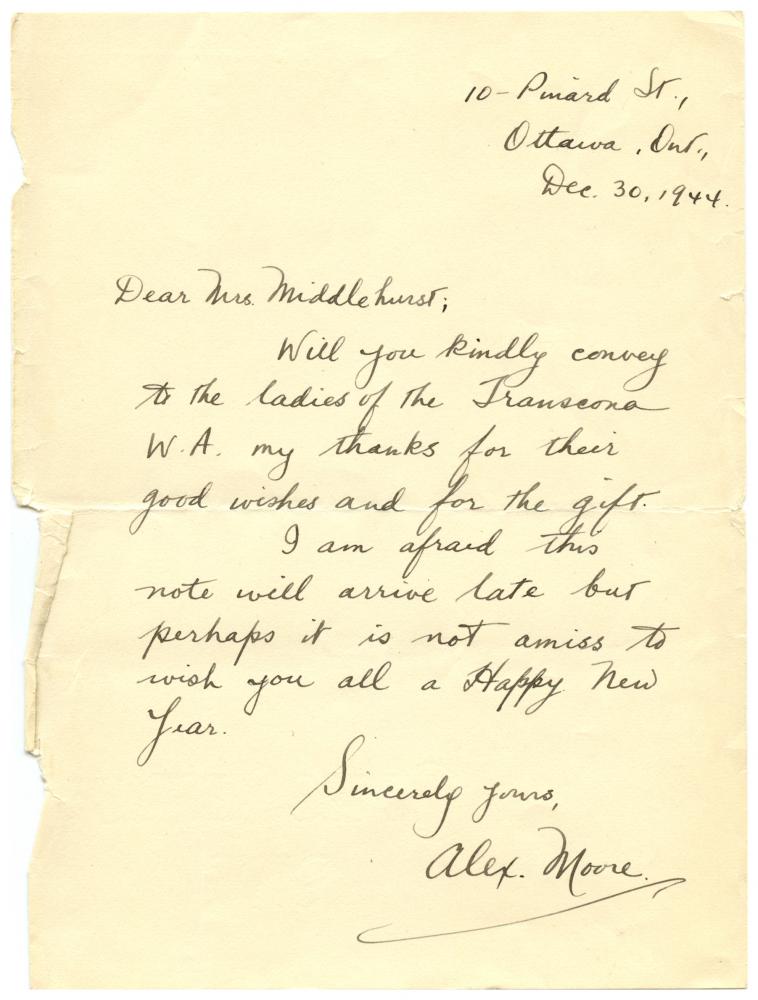 10 - Pinard St.,
Ottawa, Ont.,
Dec. 30, 1944.
Dear Mrs. Middlehurst;
Will you kindly convey
to the ladies of the Transcona
W.A. my thanks for their
good wishes and for the gift.
I am afraid this
note will arrive late but
perhaps it is not amiss to
wish you all a Happy New
Year.
Sincerely yours,
Alex. Moore.